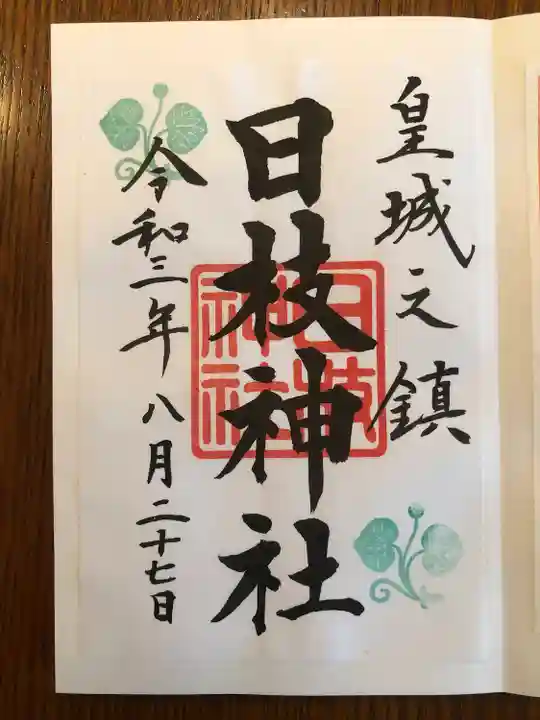 皇城之鎮
日枝神社
日枝神社
令和三年八月二十七日